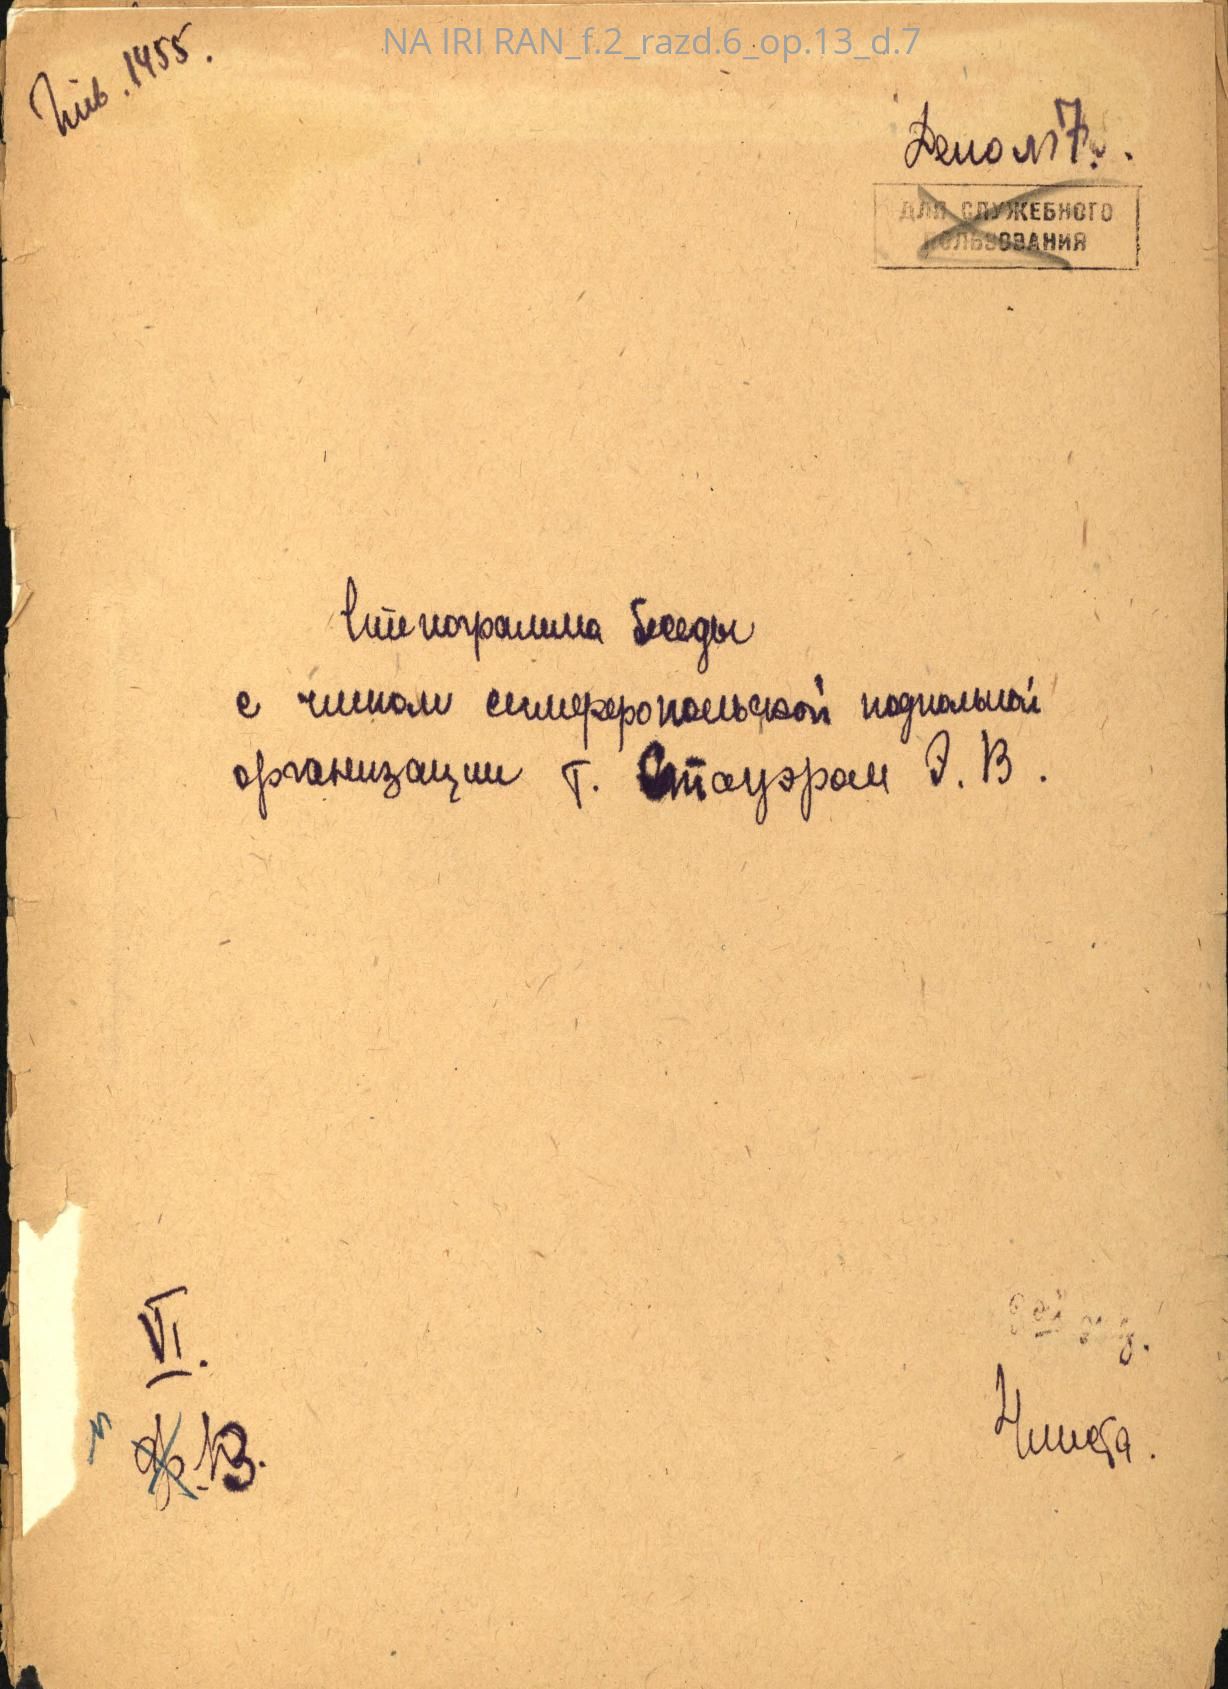 NA IRI RAN_f.2_razd.6_op.13_d.7
Инв. 1455.
Дело №7.
ДЛЯ СЛУЖЕБНОГО
ПОЛЬЗОВАНИЯ
Стенограмма беседы
с членом симферопольской подпольной
организации т. Стауэром Э. В.
VI.
13.